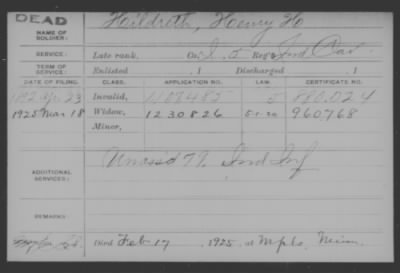 DEAD
NAME OF SOLDIER: Hildreth, Henry H
SERVICE: Late rank, Co. I, 5 Reg't Ind Cav
TERM OF SERVICE: Enlisted , 1 Discharged , 1
DATE OF FILING. CLASS. APPLICATION NO. LAW. CERTIFICATE NO.
Invalid, 880,024
1925 Mar 18 Widow, 1230826 5-1-20 960768
Minor,
ADDITIONAL SERVICES: Unass'd 79 Ind Inf
REMARKS:
Died Feb 17, 1925, at Mpls, Minn.